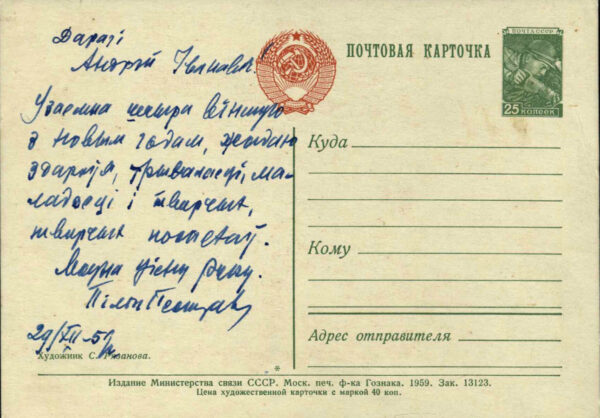 Дарагі
Андрэй Іванавіч
Узаемна шчыра віншую
з новым годам, жадаю
здароўя, трываласці, ма-
ладосці і творчых,
творчых поспехаў.
Моцна цісну руку.
Пілiп Пестрак
29/XII-59
Художник С. Рязанова.
ПОЧТОВАЯ КАРТОЧКА
ПОЧТА СССР
25 КОПЕЕК
Куда
Кому
Адрес отправителя
*
Издание Министерства связи СССР. Моск. печ. ф-ка Гознака. 1959. Зак. 13123.
Цена художественной карточки с маркой 40 коп.